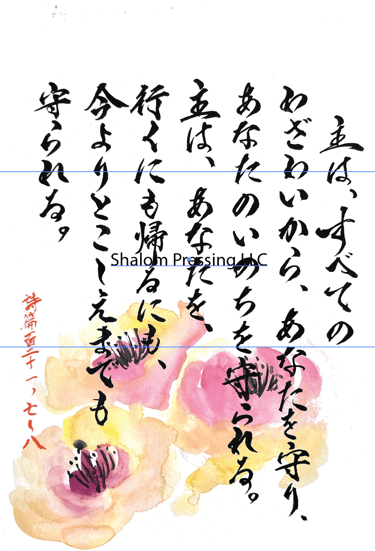 主は、すべての
わざわいから、あなたを守り、
あなたのいのちを守られる。
主は、あなたを、
行くにも帰るにも、
今よりとこしえまでも
守られる。
詩篇百二十一、七〜八
Shalom Pressing LLC